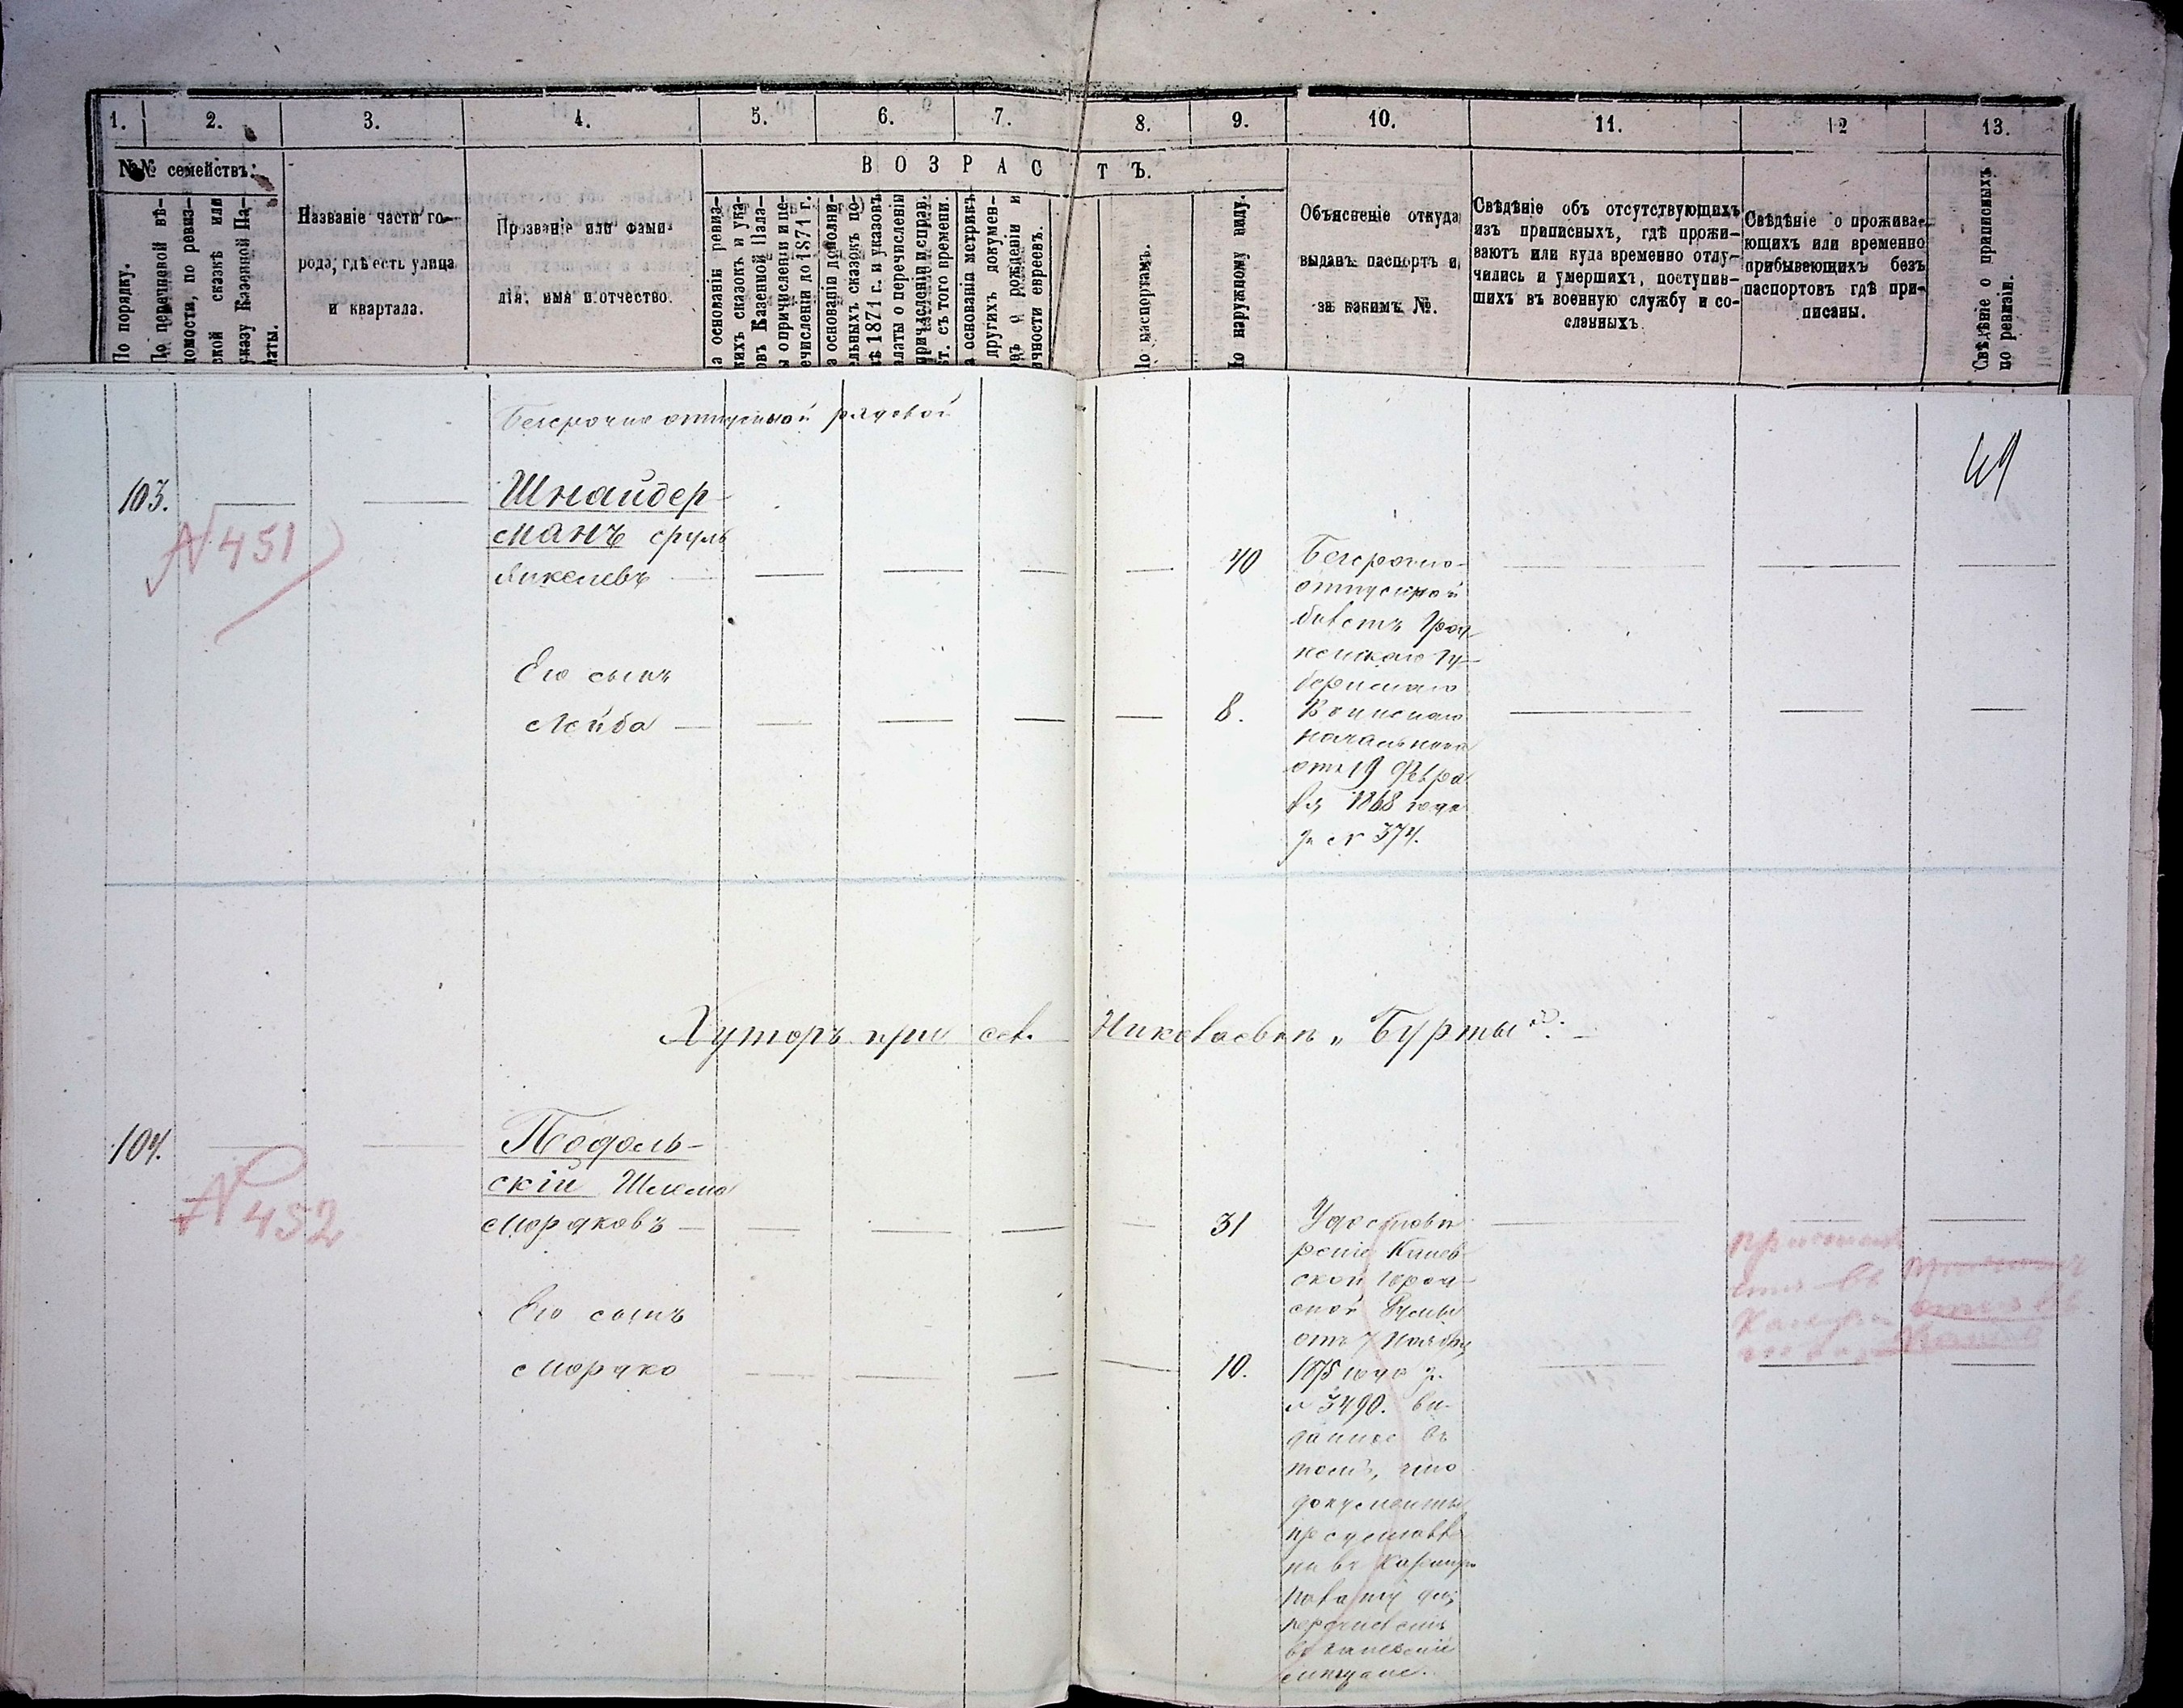 1. 2. 3. 4. 5. 6. 7. 8. 9. 10. 11. 12 13.
№№ семействъ:
По порядку.
По перечневой вѣ-
домости, по ревиз-
ской сказкѣ или
указу Казенной Па-
латы.
Названіе части го-
рода, гдѣ есть улица
и квартала.
Прозваніе или фами-
лія, имя и отчество.
ВОЗРАСТЪ.
а основаніи ревиз-
кихъ сказокъ и ука-
овъ Казенной Пала-
ы о причисленіи и пе-
ечисленіи до 1871 г.
а основаніи дополни-
ельныхъ сказокъ по-
лѣ 1871 г. и указовъ
алаты о перечисленіи
причисленіи и справ.
ст. съ того времени.
а основаніи метрикъ
другихъ докумен-
овъ о рожденіи и
ичности евреевъ.
По паспортамъ.
По наружному виду.
Объясненіе откуда
выданъ паспортъ и
за какимъ №.
Свѣдѣніе объ отсутствующихъ
изъ приписныхъ, гдѣ прожи-
ваютъ или куда временно отлу-
чились и умершихъ, поступив-
шихъ въ военную службу и со-
сланныхъ.
Свѣдѣніе о прожива-
ющихъ или временно
прибывеющихъ безъ
паспортовъ гдѣ при-
писаны.
Свѣдѣніе о приписныхъ
по ревизіи.
Безсрочно отпускной рядовой
49
103.
№ 451
Шнайдер-
манъ Сруль
Янкелевъ
40
Безсрочно-
отпускной
билетъ Грод-
ненскаго Гу-
бернскаго
Воинскаго
Начальника
отъ 19 Февра
ля 1868 года
за № 374.
Его сынъ
Лейба
8.
Хуторъ при сел. Николаевкѣ „Бурты“.
104.
№ 452
Подоль-
скій Шлема
Мордковъ
31
Удостовѣ
реніе Канев
ской Город-
ской Думы
отъ 7 Ноября
1875 года за
№ 3490. вы-
данное въ
томъ, что
документы
представле
ны въ Казенную
Палату для
перечисленія
въ Каневскіе
мещане.
Его сынъ
Мордко
10.